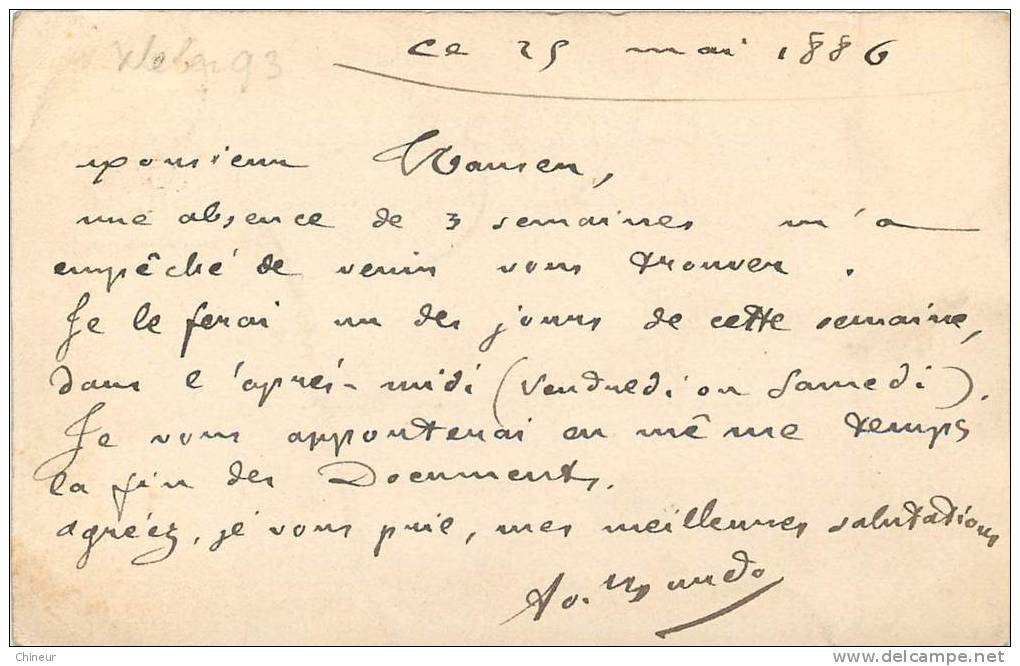 Kleber 93
ce 25 mai 1886
monsieur Hansen,
une absence de 3 semaines m'a
empêché de venir vous trouver.
Je le ferai un des jours de cette semaine,
dans l'après-midi (Vendredi ou Samedi).
Je vous apporterai en même temps
la fin des Documents.
agréez, je vous prie, mes meilleures salutations
Chineur
www.delcampe.net